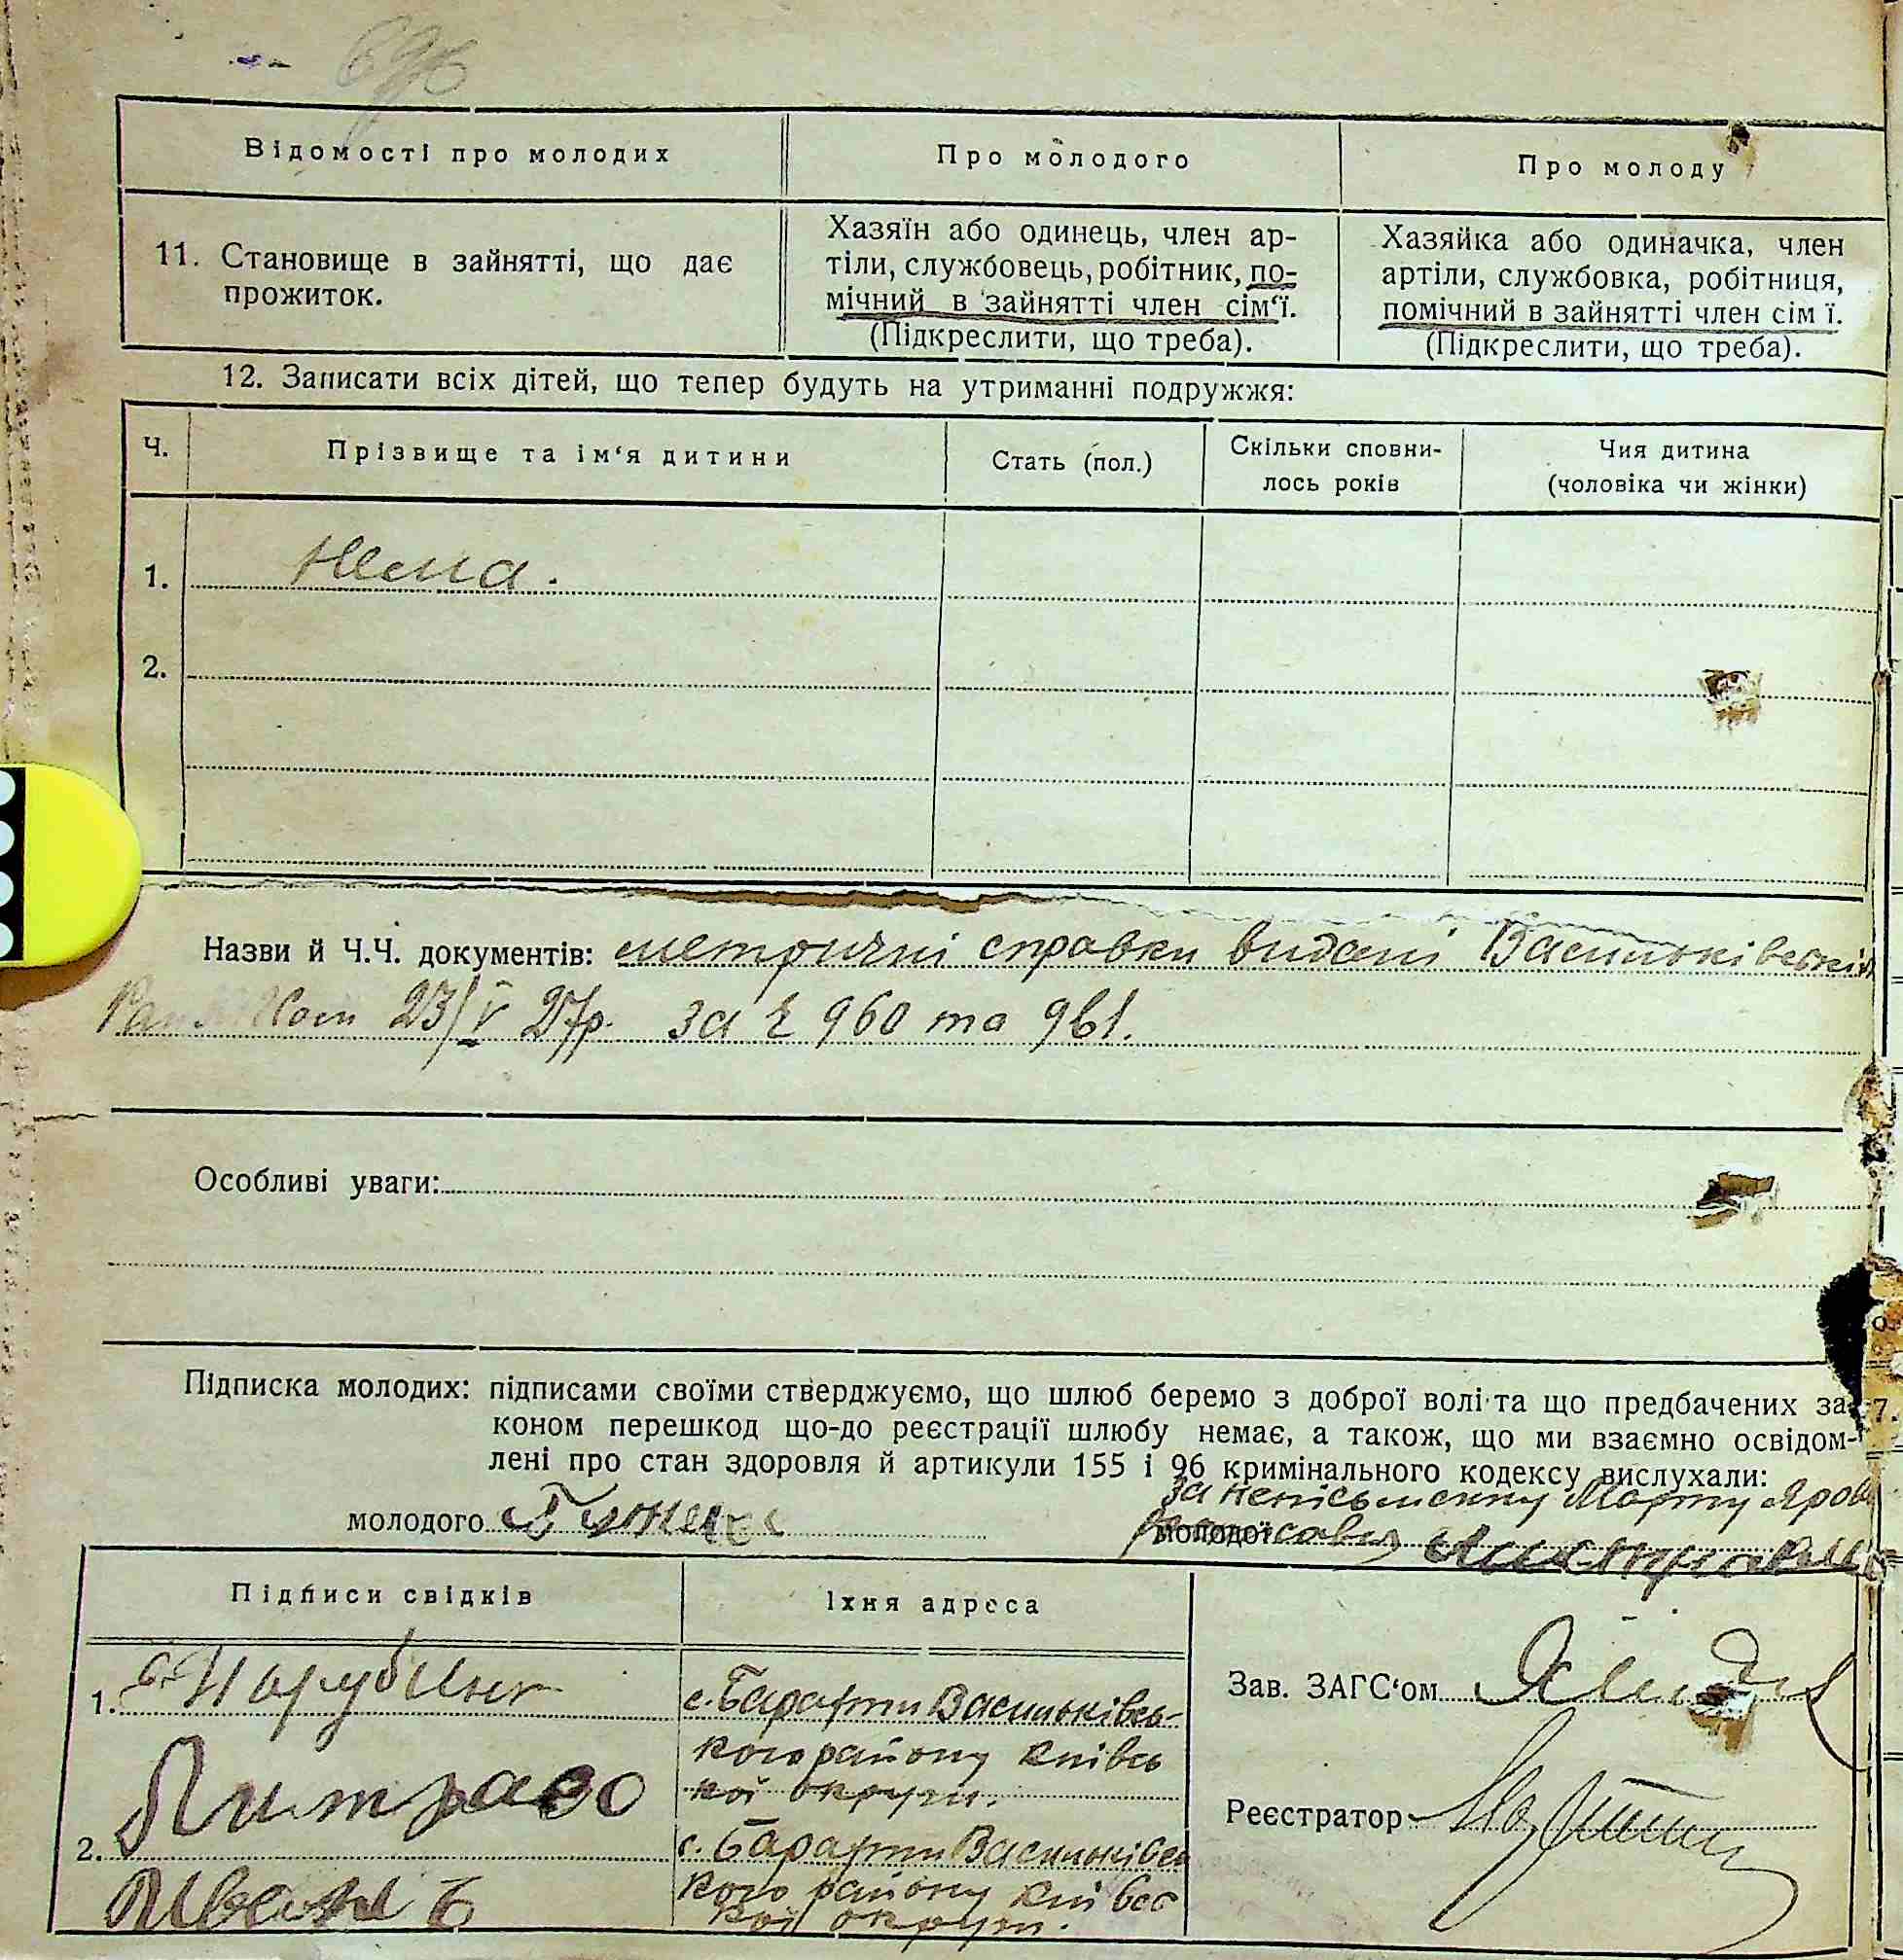 Відомості про молодих
Про молодого
Про молоду
11. Становище в зайнятті, що дає
прожиток.
Хазяїн або одинець, член ар-
тіли, службовець, робітник, по-
мічний в зайнятті член сім‘ї.
(Підкреслити, що треба).
Хазяйка або одиначка, член
артіли, службовка, робітниця,
помічний в зайнятті член сім ї.
(Підкреслити, що треба).
12. Записати всіх дітей, що тепер будуть на утриманні подружжя:
Ч.
Прізвище та ім‘я дитини
Стать (пол.)
Скільки сповни-
лось років
Чия дитина
(чоловіка чи жінки)
1. Нема.
2.
Назви й Ч.Ч. документів: метричні справки видані Васильківським
23/V 27р. за Ч 960 та 961.
Особливі уваги:
Підписка молодих: підписами своїми стверджуємо, що шлюб беремо з доброї волі та що предбачених за-
коном перешкод що-до реєстрації шлюбу немає, а також, що ми взаємно освідом-
лені про стан здоровля й артикули 155 і 96 кримінального кодексу вислухали:
за неписьменну Марту Ярову
молодого
молодої
Підписи свідків
Їхня адреса
1.
с. Барахти Васильківсь-
кого району Київсь
кої округи.
Зав. ЗАГС‘ом
2.
Иван Б
с. Барахти Васильківсь
кого району Київсь
кої округи.
Реєстратор